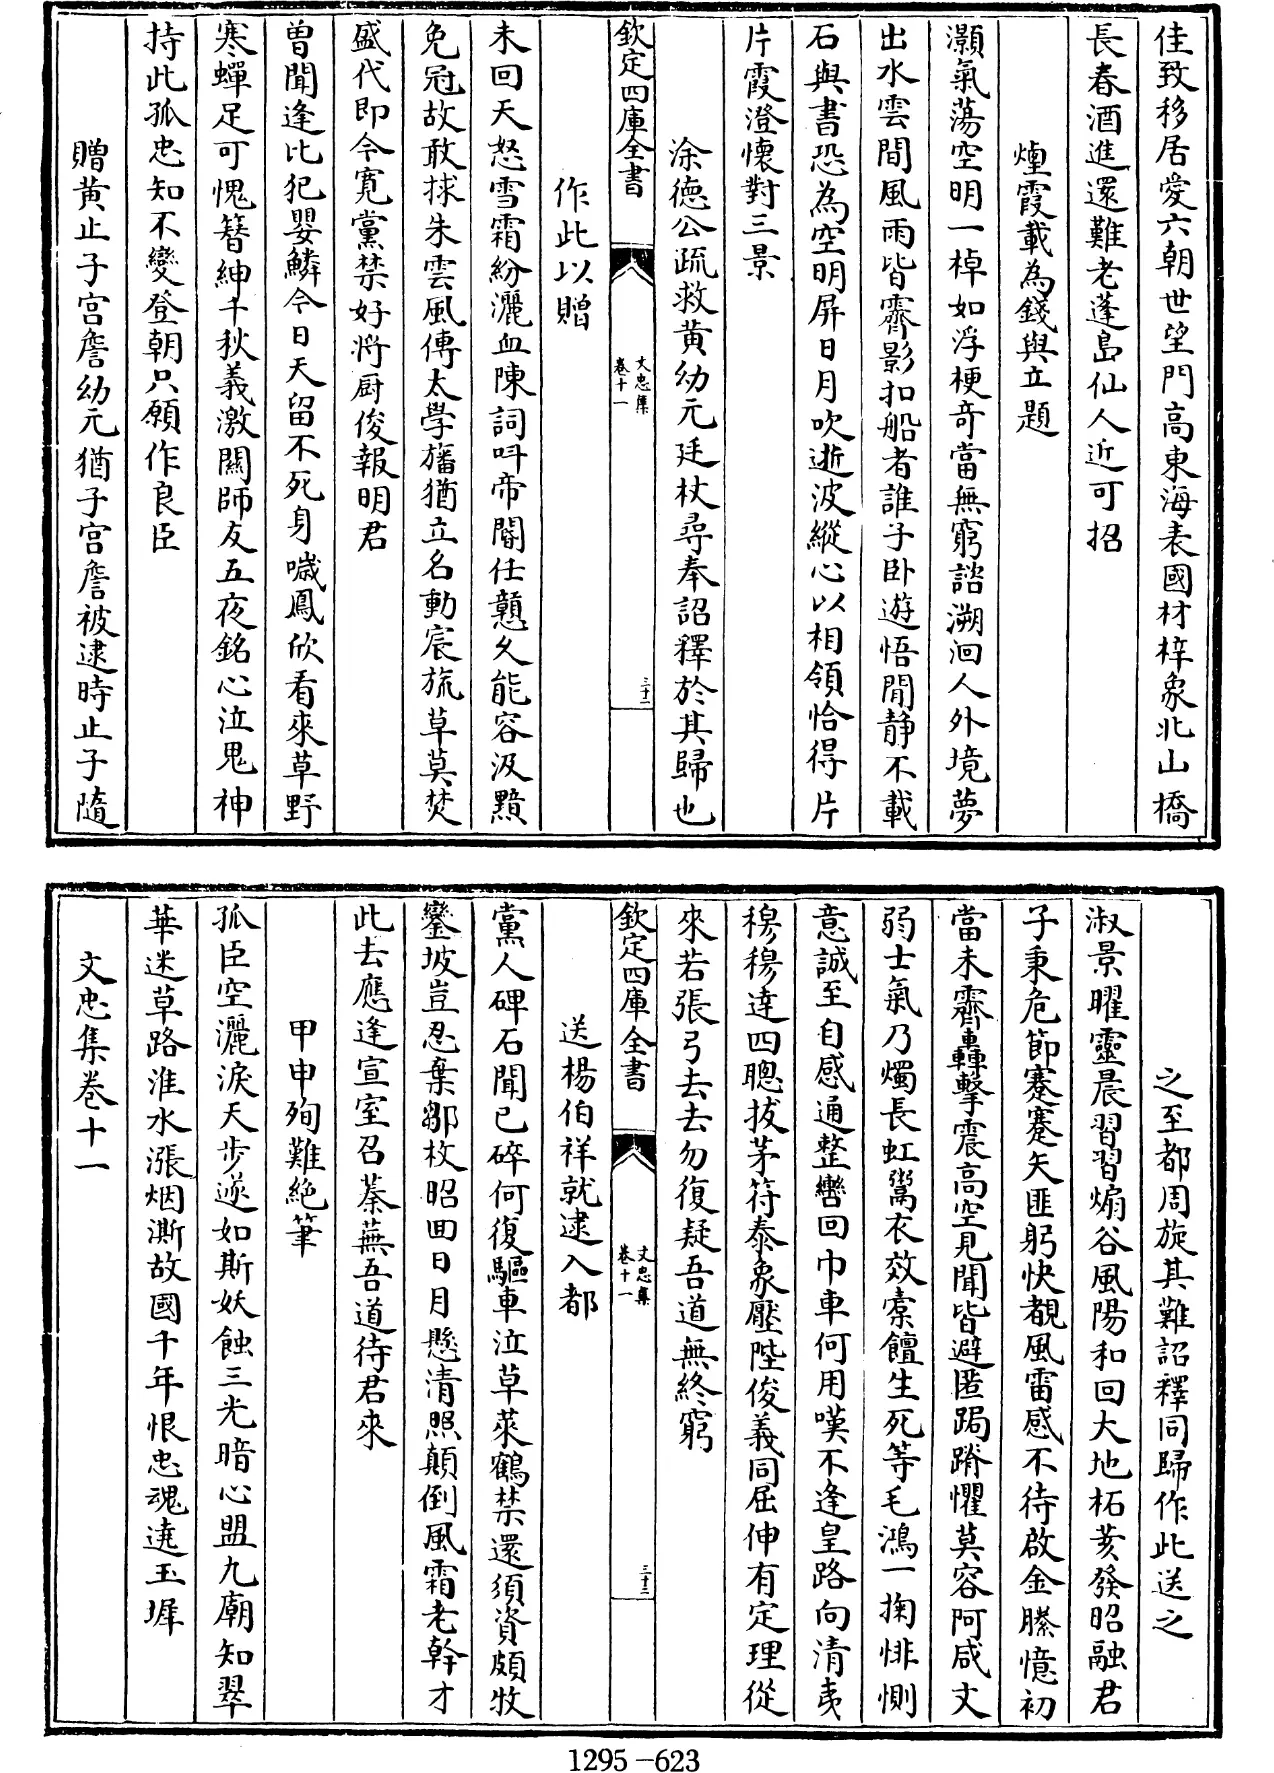 佳致移居愛六朝世望門高東海表國材梓象北山橋
長春酒進還難老蓬島仙人近可招
煙霞載為錢與立題
灝氣蕩空明一棹如浮梗奇當無窮諮溯洄人外境夢
出水雲間風雨皆霽影扣船者誰子卧遊悟閒静不載
石與書恐為空明屏日月吹逝波縱心以相領恰得片
片霞澄懷對三景
涂德公疏救黄幼元廷杖尋奉詔釋於其歸也
欽定四庫全書
文忠集
卷十一
三十二
作此以贈
未回天怒雪霜紛灑血陳詞呌帝閽仕戇久能容汲黯
免冠故敢捄朱雲風傳太學旛猶立名動宸旒草莫焚
盛代即今寛黨禁好將厨俊報明君
曽聞逢比犯嬰鱗今日天留不死身噦鳳欣看來草野
寒蟬足可愧簪紳千秋義激闗師友五夜銘心泣鬼神
持此孤忠知不變登朝只願作良臣
贈黄止子宫詹幼元猶子宫詹被逮時止子隨
之至都周旋其難詔釋同歸作此送之
淑景曜靈晨習習煽谷風陽和回大地柘荄發昭融君
子秉危節蹇蹇矢匪躬快覩風雷感不待啟金縢憶初
當未霽轟擊震高空見聞皆避匿跼蹐懼莫容阿咸丈
弱士氣乃燭長虹鬻衣效槖饘生死等毛鴻一掬悱惻
意誠至自感通整轡回巾車何用嘆不逢皇路向清夷
穆穆達四聰拔茅符泰象壓陛俊義同屈伸有定理從
來若張弓去去勿復疑吾道無終窮
欽定四庫全書
文忠集
卷十一
三十三
送楊伯祥就逮入都
黨人碑石聞已碎何復驅車泣草萊鶴禁還須資頗牧
鑾坡豈忍棄鄒枚昭囬日月懸清照顛倒風霜老幹才
此去應逢宣室召蓁蕪吾道待君來
甲申殉難絶筆
孤臣空灑淚天步遂如斯妖蝕三光暗心盟九廟知翠
華迷草路淮水漲烟澌故國千年恨忠魂遶玉墀
文忠集卷十一
1295-623